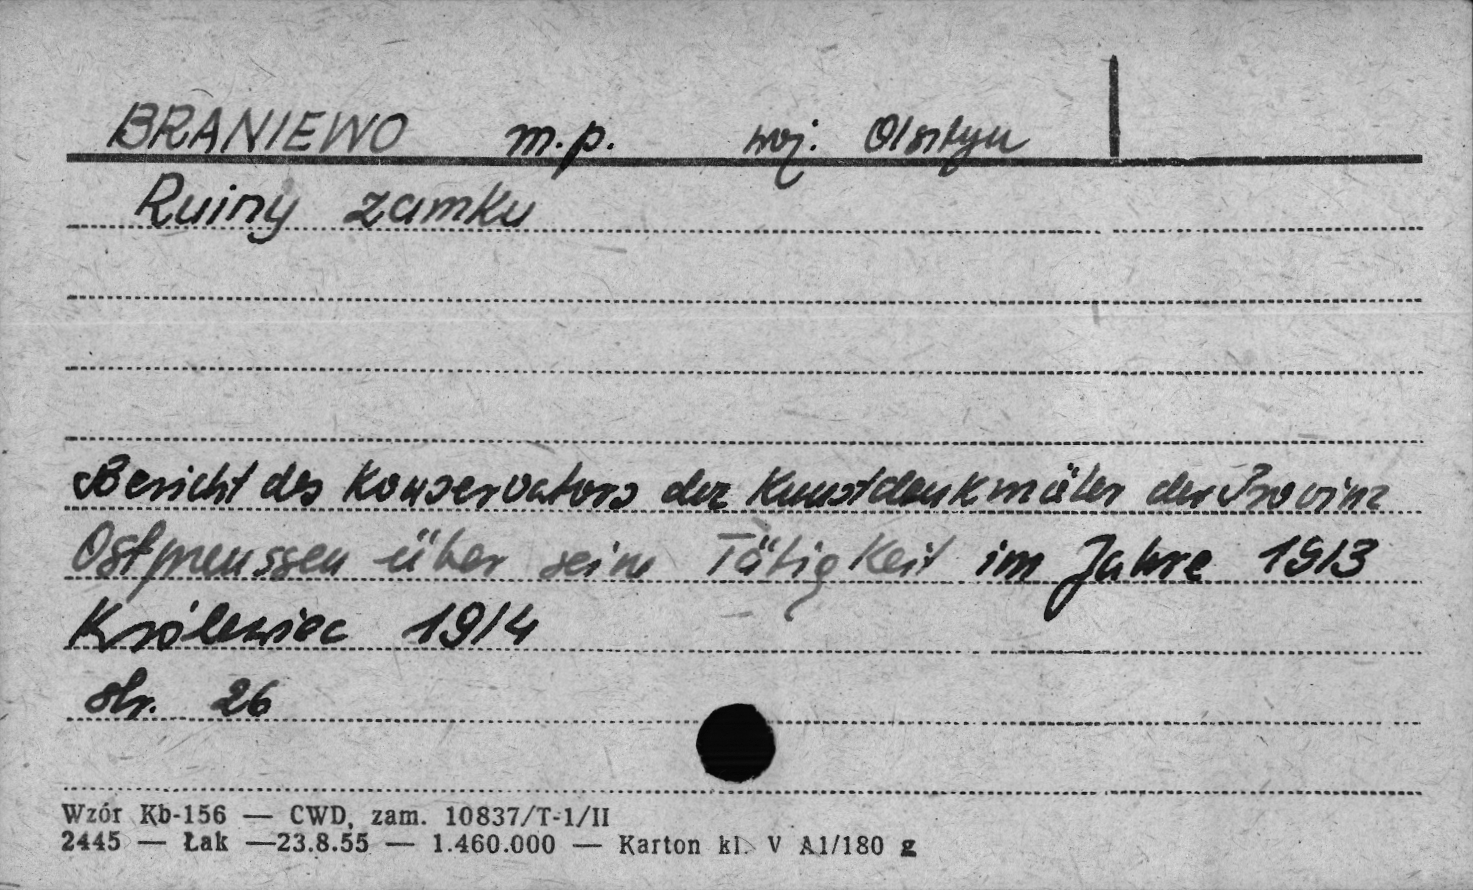 BRANIEWO m.p. woj. Olsztyn
Ruiny zamku
Bericht des Konservators der Kunstdenkmäler der Provinz
Ostpreussen über seine Tätigkeit im Jahre 1913
Królewiec 1914
str. 26
Wzór Kb-156 — CWD, zam. 10837/T-1/II
2445 — Łak —23.8.55 — 1.460.000 — Karton kl. V A1/180 g